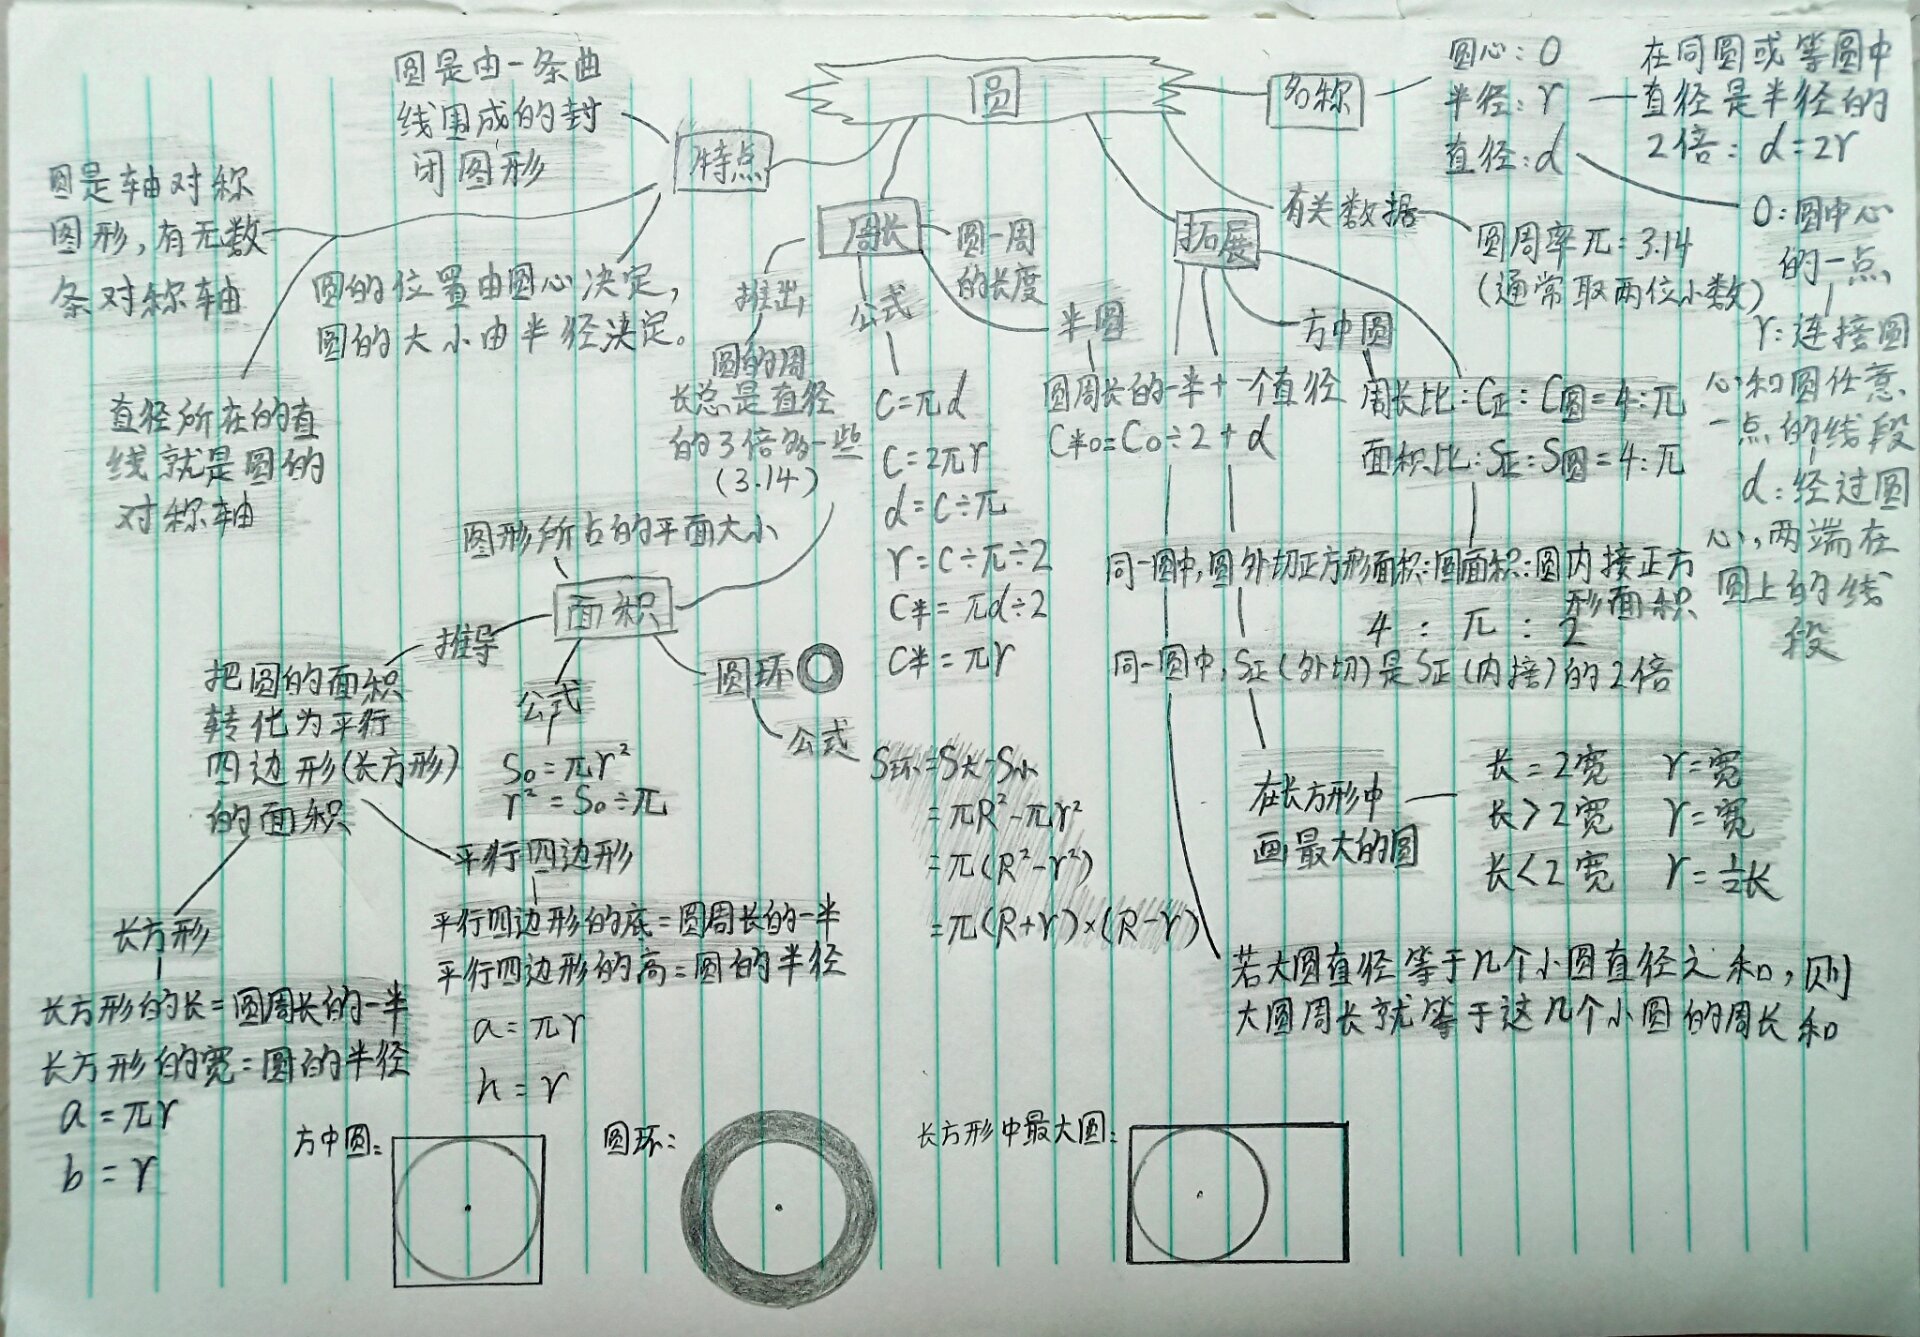 圆
名称
圆心：O
半径：r
直径：d
在同圆或等圆中
直径是半径的
2倍：d=2r
O：圆中心
的一点
r：连接圆
心和圆任意
一点的线段
d：经过圆
心，两端在
圆上的线
段
有关数据
圆周率π=3.14
(通常取两位小数)
特点
圆是由一条曲
线围成的封
闭图形
圆是轴对称
图形，有无数
条对称轴
直径所在的直
线就是圆的
对称轴
圆的位置由圆心决定，
圆的大小由半径决定。
周长
圆一周
的长度
推出
圆的周
长总是直径
的3倍多一些
(3.14)
公式
C=πd
C=2πr
d=C÷π
r=C÷π÷2
C半=πd÷2
C半=πr
半圆
圆周长的一半+一个直径
C半o=Co÷2+d
面积
图形所占的平面大小
推导
把圆的面积
转化为平行
四边形(长方形)
的面积
长方形
长方形的长=圆周长的一半
长方形的宽=圆的半径
a=πr
b=r
平行四边形
平行四边形的底=圆周长的一半
平行四边形的高=圆的半径
a=πr
h=r
公式
So=πr²
r²=So÷π
圆环
公式
S环=S大-S小
=πR²-πr²
=π(R²-r²)
=π(R+r)×(R-r)
拓展
方中圆
周长比：C正：C圆=4：π
面积比：S正：S圆=4：π
同一圆中，圆外切正方形面积：圆面积：圆内接正方
形面积
4：π：2
同一圆中，S正(外切)是S正(内接)的2倍
在长方形中
画最大的圆
长=2宽 r=宽
长>2宽 r=宽
长<2宽 r=½长
若大圆直径等于几个小圆直径之和，则
大圆周长就等于这几个小圆的周长和
方中圆：
圆环：
长方形中最大圆：